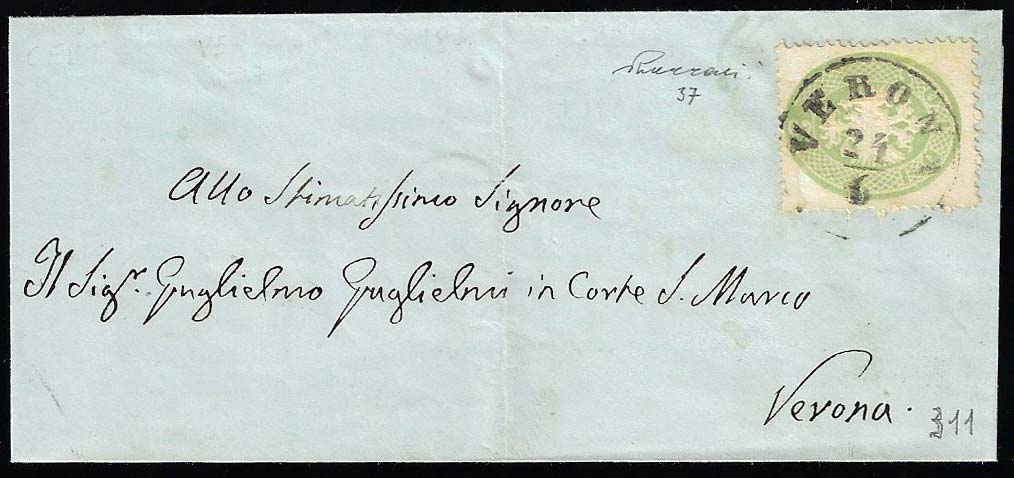 37
VERON
21
6
Allo Stimatissimo Signore
Il Sigr. Guglielmo Guglielmi in Corte S. Marco
Verona.
311